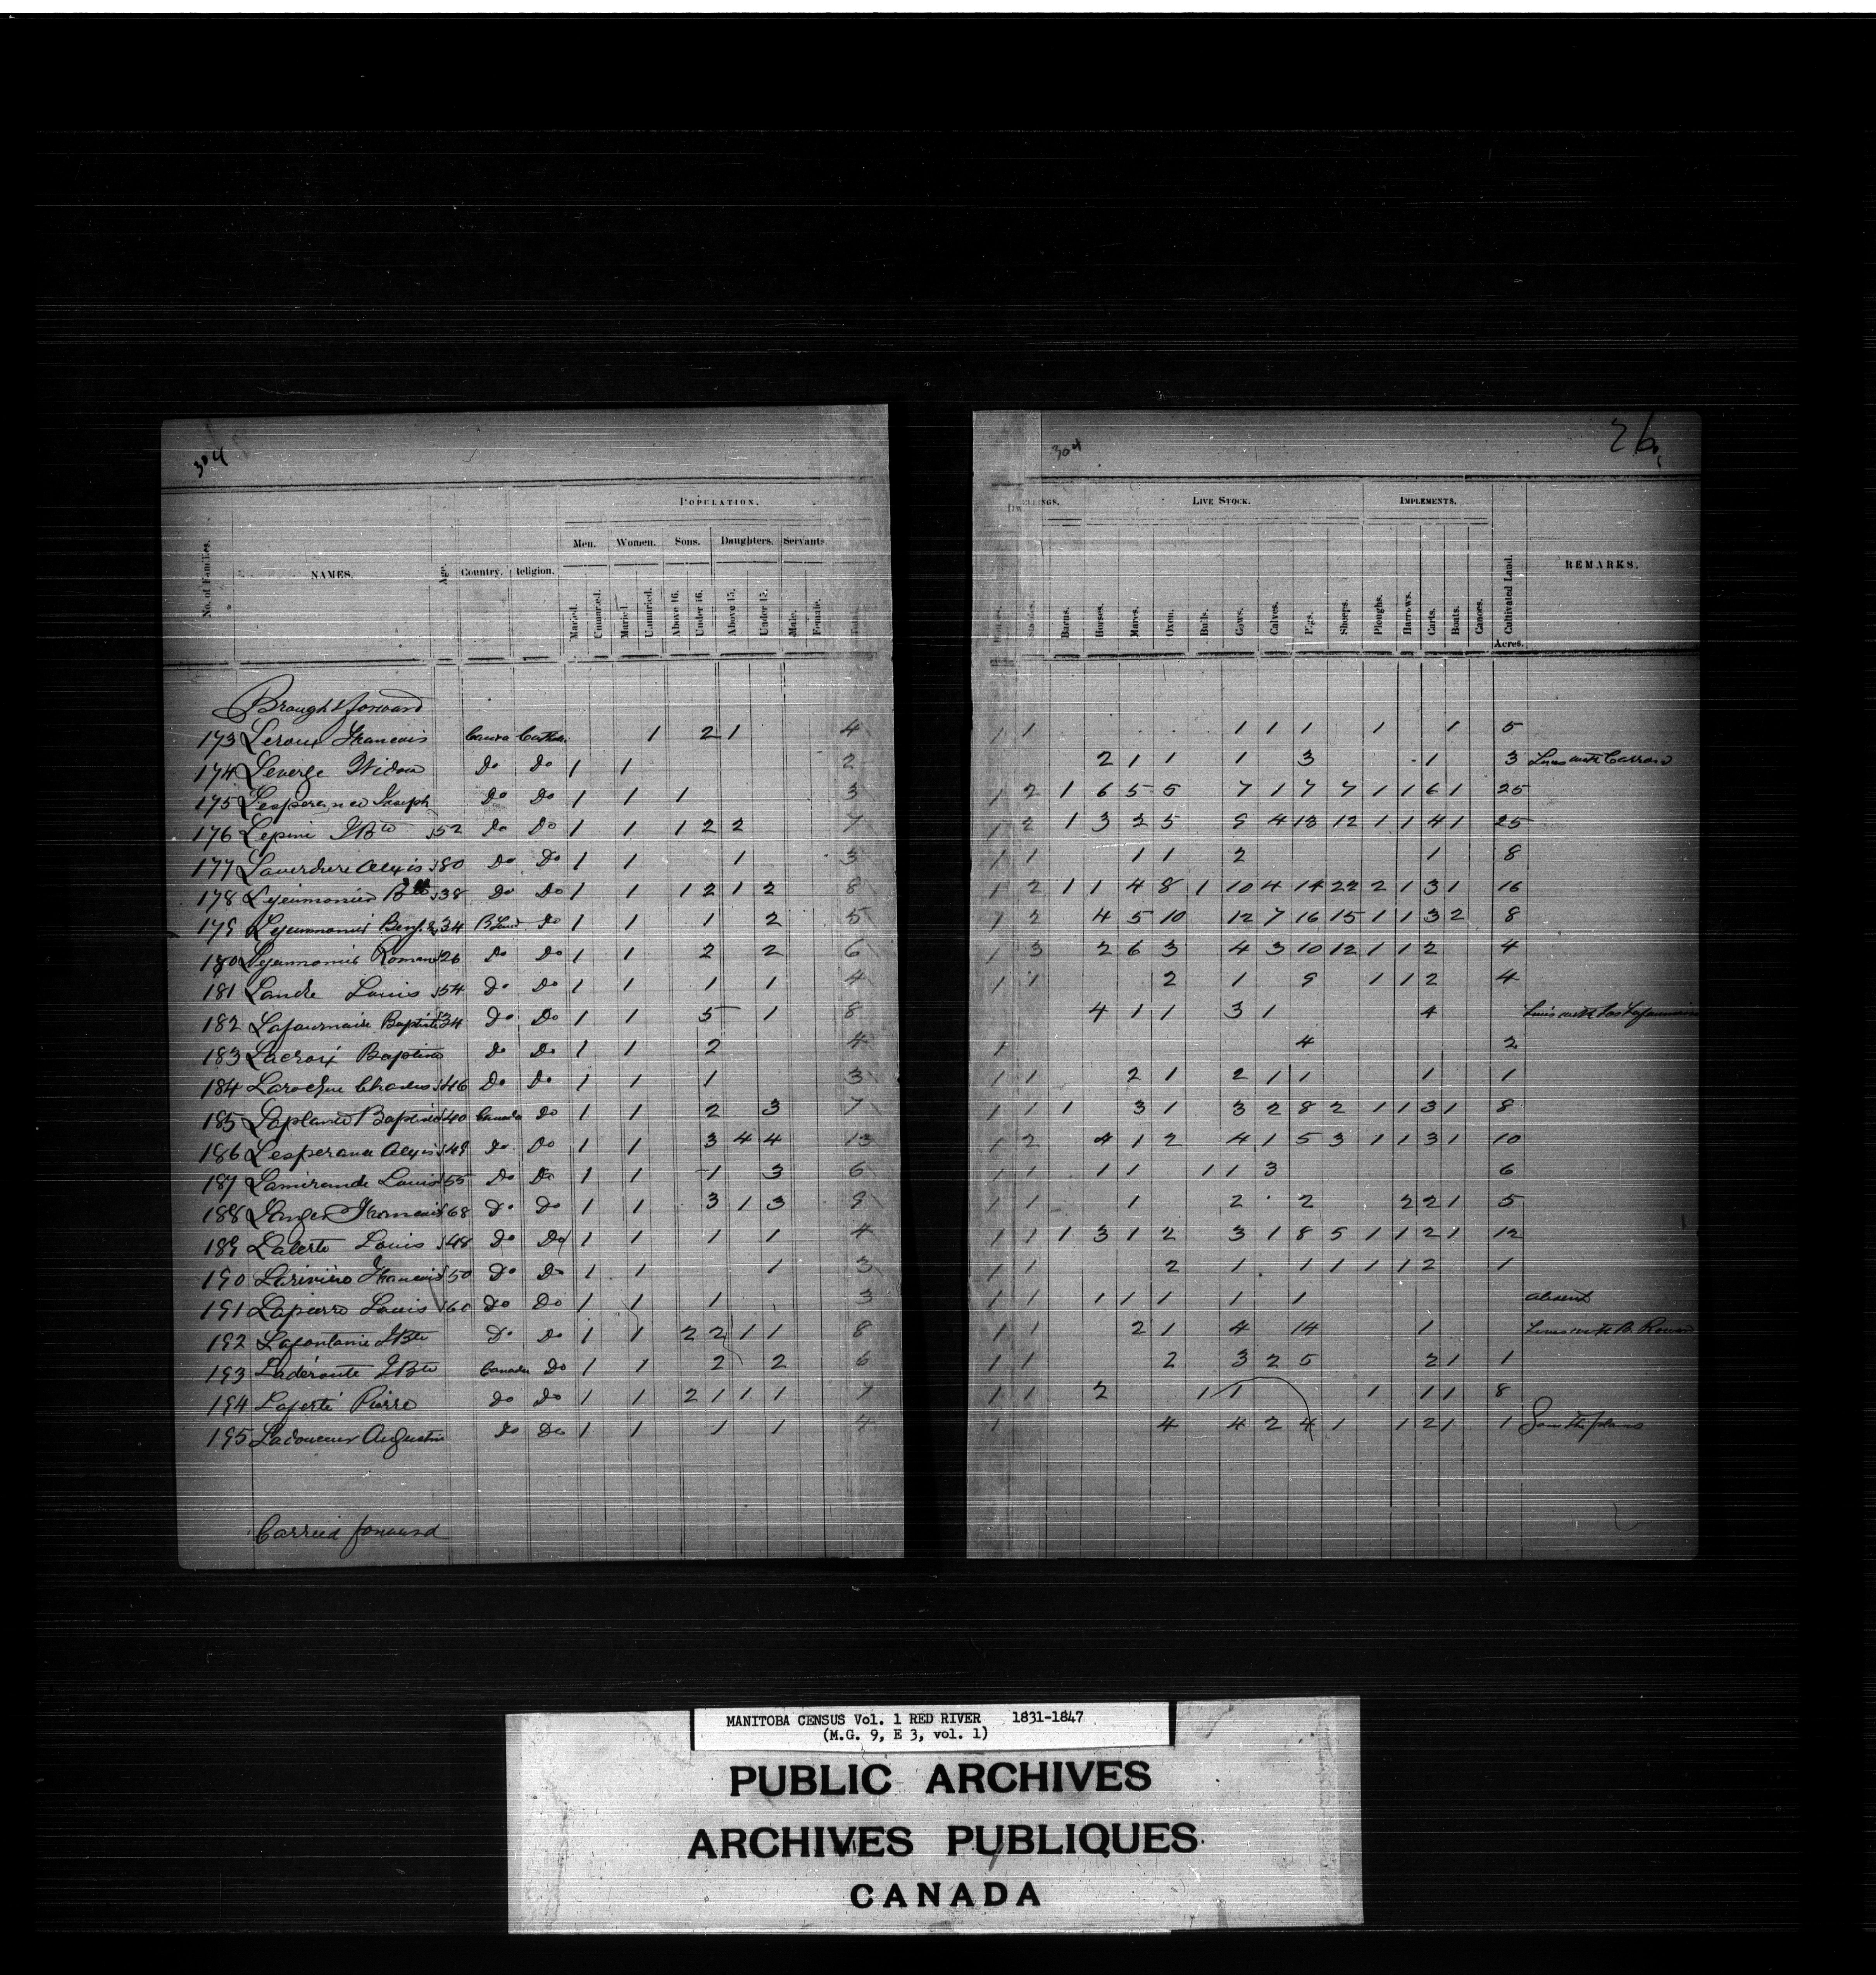 304
304
26
POPULATION.
DWELLINGS.
LIVE STOCK.
IMPLEMENTS.
No. of Families.
NAMES.
Age.
Country.
Religion.
Men.
Women.
Sons.
Daughters.
Servants
Married.
Unmarried.
Married.
Unmarried.
Above 16.
Under 16.
Above 15.
Under 15.
Male.
Female.
Total.
Houses.
Stables.
Barns.
Horses.
Mares.
Oxen.
Bulls.
Cows.
Calves.
Pigs.
Sheeps.
Ploughs.
Harrows.
Carts.
Boats.
Canoes.
Cultivated Land.
Acres.
REMARKS.
Brought forward
173 Leroux Francois 1 2 1 4 1 1 1 1 1 1 1 5
174 Leverge Widow Do Do 1 1 2 2 1 1 1 3 1 3
175 Lesperance Joseph Do Do 1 1 1 3 1 2 1 6 5 5 7 1 7 7 1 1 6 1 25
176 Lepine J Bte 52 Do Do 1 1 1 2 2 7 1 2 1 3 2 5 9 4 13 12 1 1 4 1 25
177 Laverdure Alexis 80 Do Do 1 1 1 3 1 1 1 1 2 1 8
178 Lejeumonier Bte 38 Do Do 1 1 1 2 1 2 8 1 2 1 1 4 8 1 10 4 14 22 2 1 3 1 16
179 Lejeumonier Benj. 34 Do 1 1 1 2 5 1 2 4 5 10 12 7 16 15 1 1 3 2 8
180 Lejeumonier Roman 26 Do Do 1 1 2 2 6 1 3 2 6 3 4 3 10 12 1 1 2 4
181 Louis 54 Do Do 1 1 1 1 4 1 1 2 1 9 1 1 2 4
182 Lafournaise Baptiste 34 Do Do 1 1 5 1 8 4 1 1 3 1 4
183 Lacroix Baptiste Do Do 1 1 2 4 1 4 2
184 Laroche Charles 46 Do Do 1 1 1 3 1 1 2 1 2 1 1 1 1
185 Laplante Baptiste 40 Canada Do 1 1 2 3 7 1 1 1 3 1 3 2 8 2 1 1 3 1 8
186 Lesperance Alexis 49 Do Do 1 1 3 4 4 13 1 2 4 1 2 4 1 5 3 1 1 3 1 10
187 Lamirande Louis 55 Do Do 1 1 1 3 6 1 1 1 1 1 1 3 6
188 Francois 68 Do Do 1 1 3 1 3 9 1 1 1 2 2 2 2 1 5
189 Laterte Louis 48 Do Do 1 1 1 1 4 1 1 1 3 1 2 3 1 8 5 1 1 2 1 12
190 Lariviere Francois 50 Do Do 1 1 1 3 1 1 2 1 1 1 1 1 2 1
191 Lapierre Louis 60 Do Do 1 1 1 3 1 1 1 1 1 1 1 absent
192 Lafontaine J Bte Do Do 1 1 2 2 1 1 8 1 1 2 1 4 14 1
193 Laderoute J Bte Canada Do 1 1 2 2 6 1 1 2 3 2 5 2 1 1
194 Laferté Pierre Do Do 1 1 2 1 1 1 7 1 1 2 1 1 1 1 1 8
195 Ladouceur Augustin Do Do 1 1 1 1 4 1 4 4 2 4 1 1 2 1 1
Carried forward
MANITOBA CENSUS Vol. 1 RED RIVER 1831-1847
(M.G. 9, E 3, vol. 1)
PUBLIC ARCHIVES
ARCHIVES PUBLIQUES
CANADA